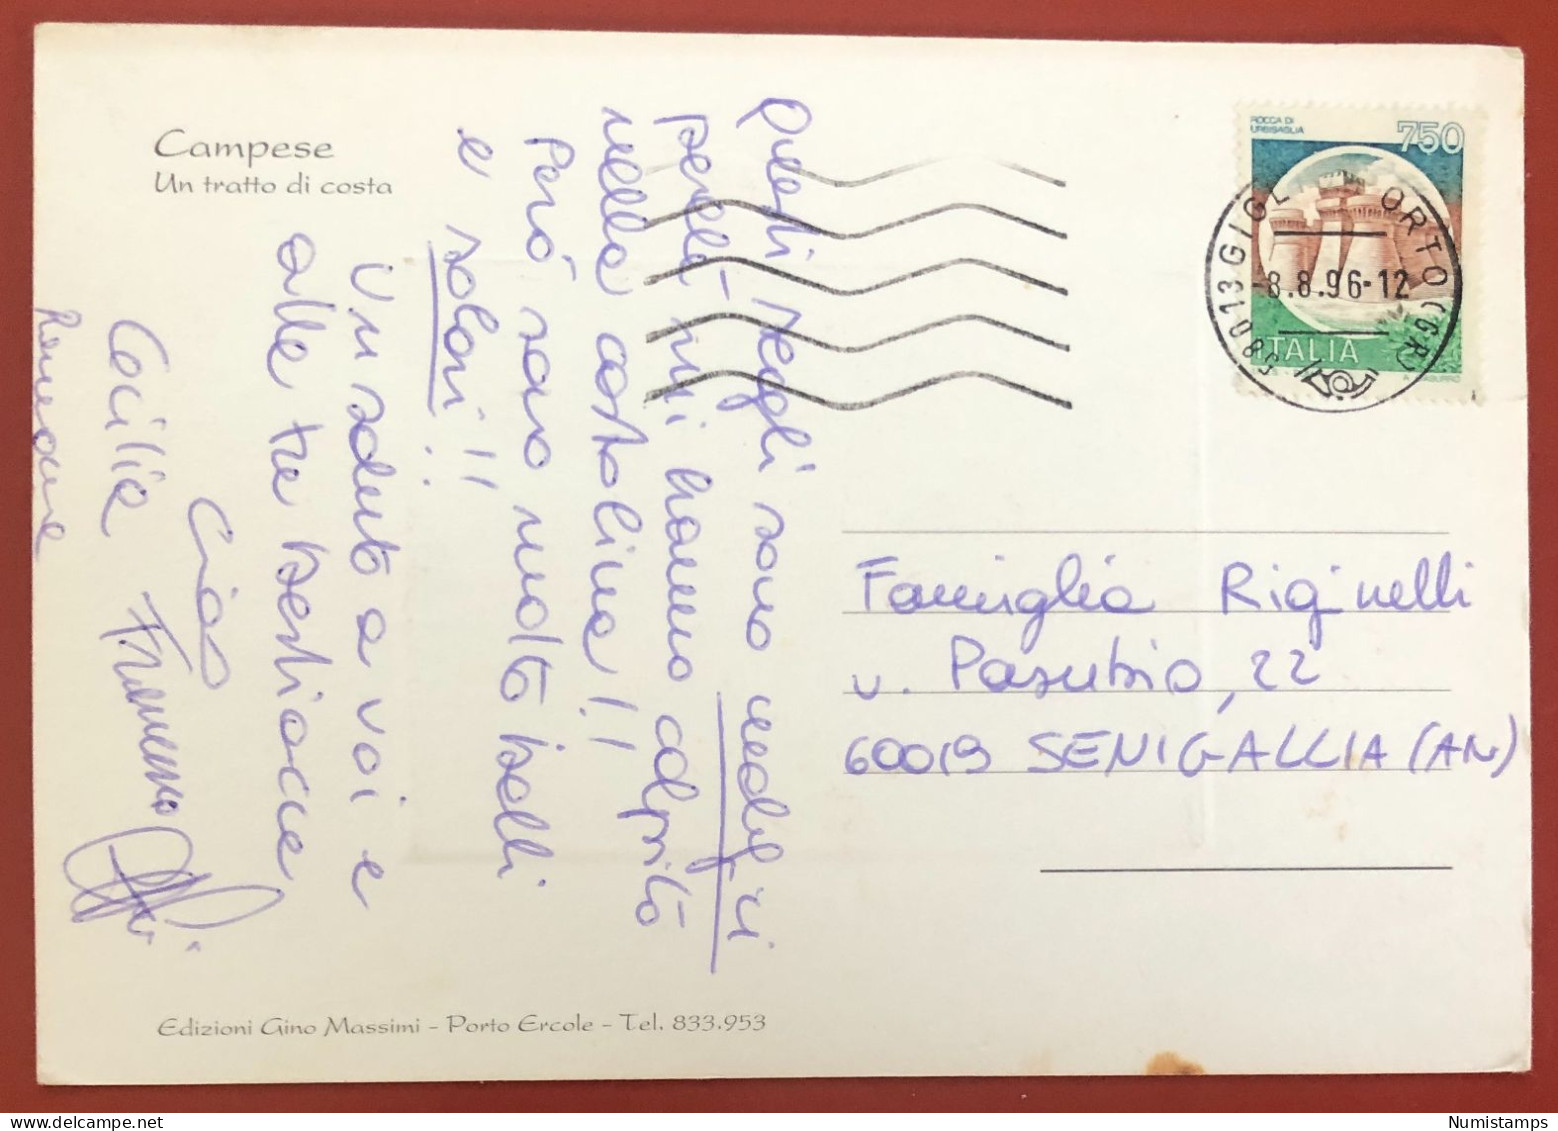 Campese
Un tratto di costa
Questi scogli sono
perché mi hanno
nella cartolina!!
Però sono molto belli
e soleri!!
Un saluto a voi e
alle tre bestiacce,
Ciao
Cecilia Francesco
ROCCA DI
URBISAGLIA
750
ITALIA
58013 GIGLIO PORTO (GR)
8.8.96-12
Famiglia Riginelli
v. Pasubio, 22
60019 SENIGALLIA (AN)
Edizioni Gino Massimi - Porto Ercole - Tel. 833.953
Numistamps